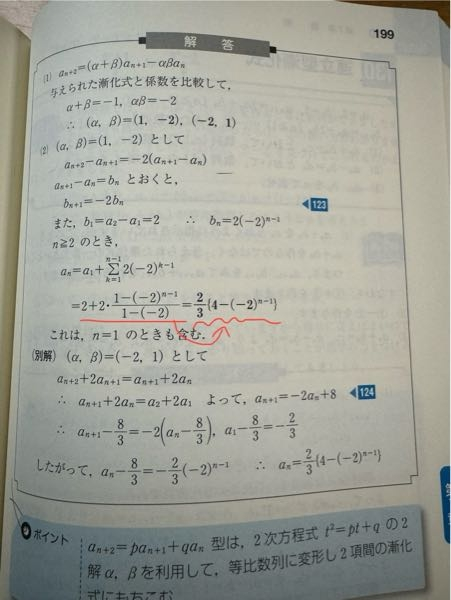 199
解答
(1) aₙ₊₂=(α+β)aₙ₊₁−αβaₙ
与えられた漸化式と係数を比較して,
α+β=−1, αβ=−2
∴ (α, β)=(1, −2), (−2, 1)
(2) (α, β)=(1, −2) として
aₙ₊₂−aₙ₊₁=−2(aₙ₊₁−aₙ)
aₙ₊₁−aₙ=bₙ とおくと,
bₙ₊₁=−2bₙ
また, b₁=a₂−a₁=2 ∴ bₙ=2(−2)ⁿ⁻¹ 123
n≧2 のとき,
aₙ=a₁+∑_{k=1}^{n−1} 2(−2)ᵏ⁻¹
=2+2・(1−(−2)ⁿ⁻¹)/(1−(−2))=2/3{4−(−2)ⁿ⁻¹}
これは, n=1 のときも含む.
(別解) (α, β)=(−2, 1) として
aₙ₊₂+2aₙ₊₁=aₙ₊₁+2aₙ
∴ aₙ₊₁+2aₙ=a₂+2a₁ よって, aₙ₊₁=−2aₙ+8 124
∴ aₙ₊₁−8/3=−2(aₙ−8/3), a₁−8/3=−2/3
したがって, aₙ−8/3=−2/3(−2)ⁿ⁻¹ ∴ aₙ=2/3{4−(−2)ⁿ⁻¹}
ポイント
aₙ₊₂=paₙ₊₁+qaₙ 型は, 2次方程式 t²=pt+q の2
解 α, β を利用して, 等比数列に変形し2項間の漸化
式にもちこむ